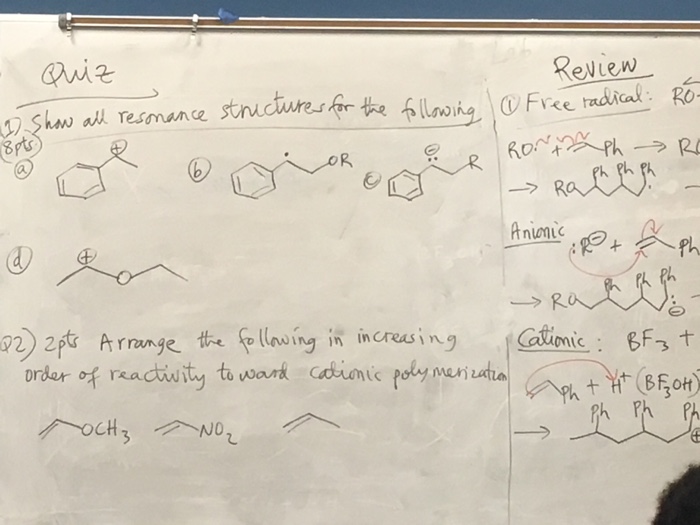 Quiz
Q1) Show all resonance structures for the following
8pts.
ⓐ ⊕
ⓑ · OR
ⓒ ⊖ : R
ⓓ ⊕ O
Q2) 2pts Arrange the following in increasing
order of reactivity toward cationic polymerization
OCH3 NO2
Review
① Free radical: RO
RO· + Ph →
→ RO Ph Ph Ph ·
Anionic
:R⊖ + Ph
→ Ph Ph Ph : ⊖
Cationic: BF3 +
Ph + H+ (BF3OH)
→ Ph Ph Ph ⊕